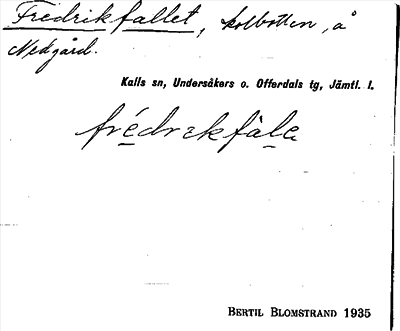 Fredrikfallet, kolbotten, å
Nedgård.
Kalls sn, Undersåkers o. Offerdals tg, Jämtl. l.
frédrɩkfàlɛ
BERTIL BLOMSTRAND 1935